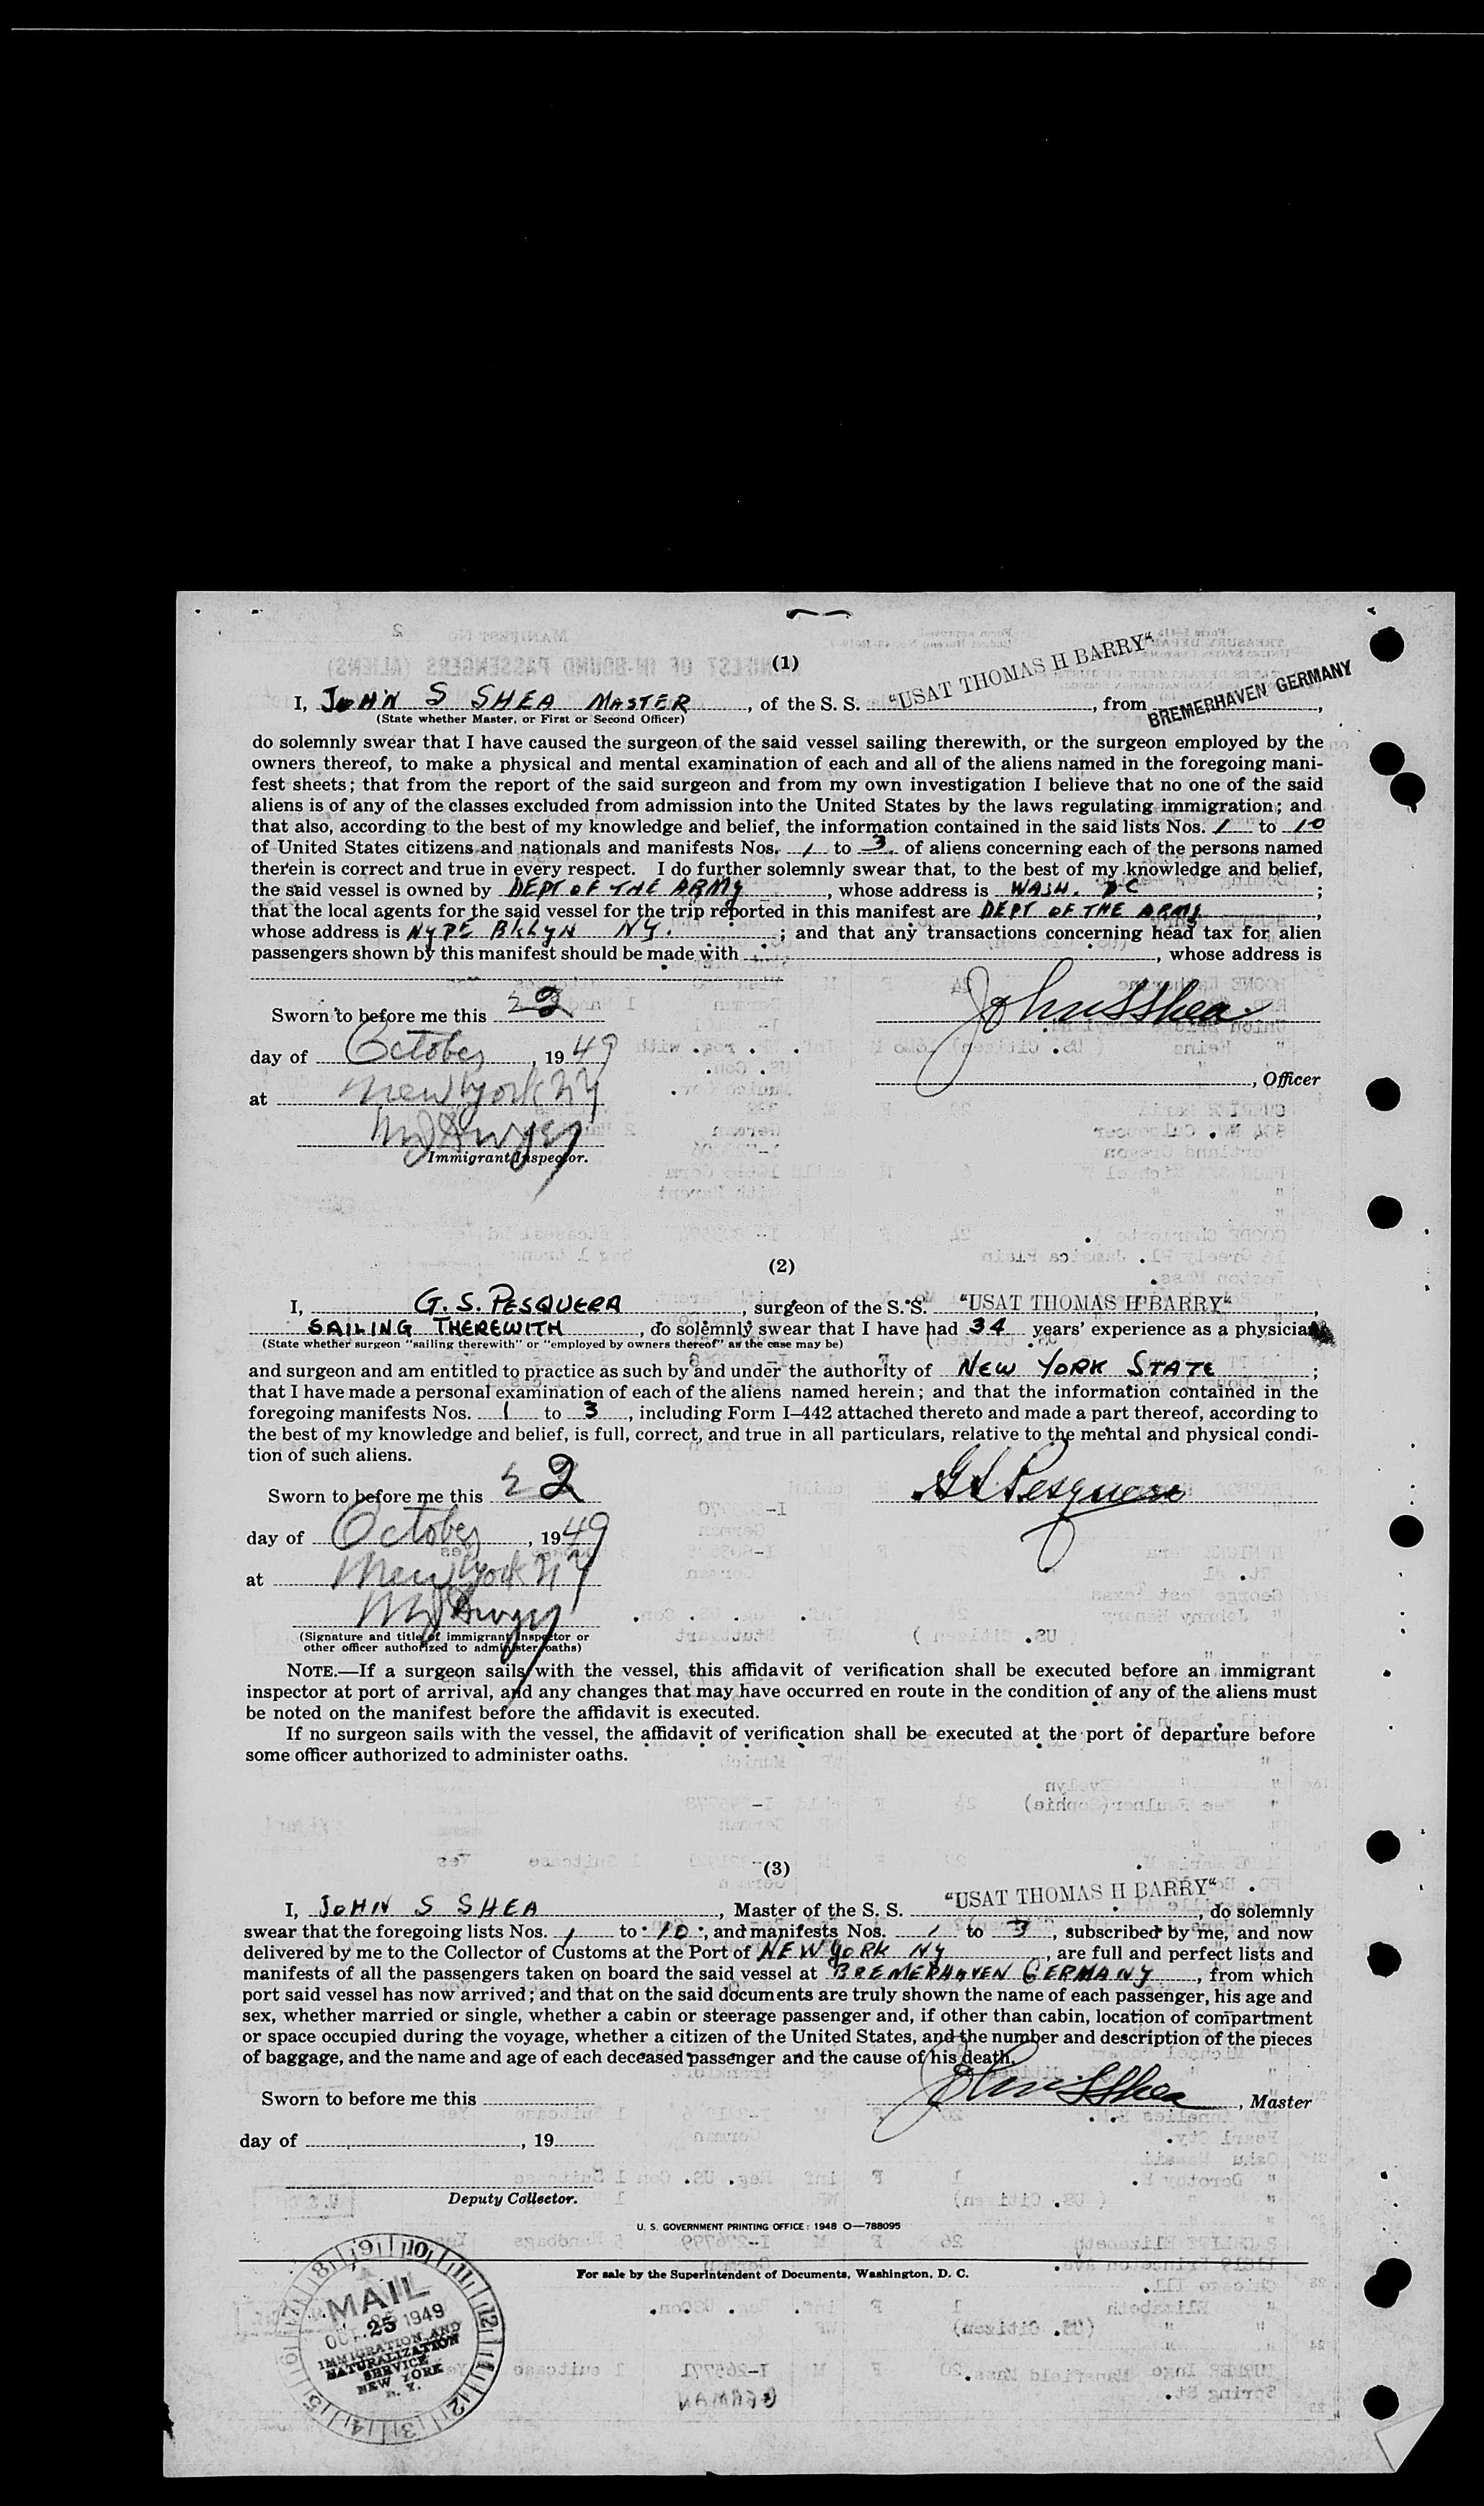 (1)
I, JOHN S SHEA MASTER, of the S. S. "USAT THOMAS H BARRY", from BREMERHAVEN GERMANY,
(State whether Master, or First or Second Officer)
do solemnly swear that I have caused the surgeon of the said vessel sailing therewith, or the surgeon employed by the
owners thereof, to make a physical and mental examination of each and all of the aliens named in the foregoing mani-
fest sheets; that from the report of the said surgeon and from my own investigation I believe that no one of the said
aliens is of any of the classes excluded from admission into the United States by the laws regulating immigration; and
that also, according to the best of my knowledge and belief, the information contained in the said lists Nos. 1 to 10
of United States citizens and nationals and manifests Nos. 1 to 3 of aliens concerning each of the persons named
therein is correct and true in every respect. I do further solemnly swear that, to the best of my knowledge and belief,
the said vessel is owned by DEPT OF THE ARMY, whose address is WASH. DC;
that the local agents for the said vessel for the trip reported in this manifest are DEPT OF THE ARMY,
whose address is NYPE BKLYN NY.; and that any transactions concerning head tax for alien
passengers shown by this manifest should be made with , whose address is
John S Shea
Sworn to before me this 22
day of October, 1949
, Officer
at New York NY
Immigrant Inspector.
(2)
I, G. S. PESQUERA, surgeon of the S. S. "USAT THOMAS H BARRY",
SAILING THEREWITH, do solemnly swear that I have had 34 years' experience as a physician
(State whether surgeon "sailing therewith" or "employed by owners thereof" as the case may be)
and surgeon and am entitled to practice as such by and under the authority of NEW YORK STATE;
that I have made a personal examination of each of the aliens named herein; and that the information contained in the
foregoing manifests Nos. 1 to 3, including Form I-442 attached thereto and made a part thereof, according to
the best of my knowledge and belief, is full, correct, and true in all particulars, relative to the mental and physical condi-
tion of such aliens.
Sworn to before me this 22
G S Pesquera
day of October, 1949
at New York NY
(Signature and title of immigrant inspector or
other officer authorized to administer oaths)
NOTE.—If a surgeon sails with the vessel, this affidavit of verification shall be executed before an immigrant
inspector at port of arrival, and any changes that may have occurred en route in the condition of any of the aliens must
be noted on the manifest before the affidavit is executed.
If no surgeon sails with the vessel, the affidavit of verification shall be executed at the port of departure before
some officer authorized to administer oaths.
(3)
I, JOHN S SHEA, Master of the S. S. "USAT THOMAS H BARRY", do solemnly
swear that the foregoing lists Nos. 1 to 10, and manifests Nos. 1 to 3, subscribed by me, and now
delivered by me to the Collector of Customs at the Port of NEW YORK NY, are full and perfect lists and
manifests of all the passengers taken on board the said vessel at BREMERHAVEN GERMANY, from which
port said vessel has now arrived; and that on the said documents are truly shown the name of each passenger, his age and
sex, whether married or single, whether a cabin or steerage passenger and, if other than cabin, location of compartment
or space occupied during the voyage, whether a citizen of the United States, and the number and description of the pieces
of baggage, and the name and age of each deceased passenger and the cause of his death.
Sworn to before me this
John S Shea, Master
day of , 19
Deputy Collector.
U. S. GOVERNMENT PRINTING OFFICE: 1948 O—788095
For sale by the Superintendent of Documents, Washington, D. C.
MAIL
OCT 25 1949
IMMIGRATION AND
NATURALIZATION
SERVICE
NEW YORK
N. Y.